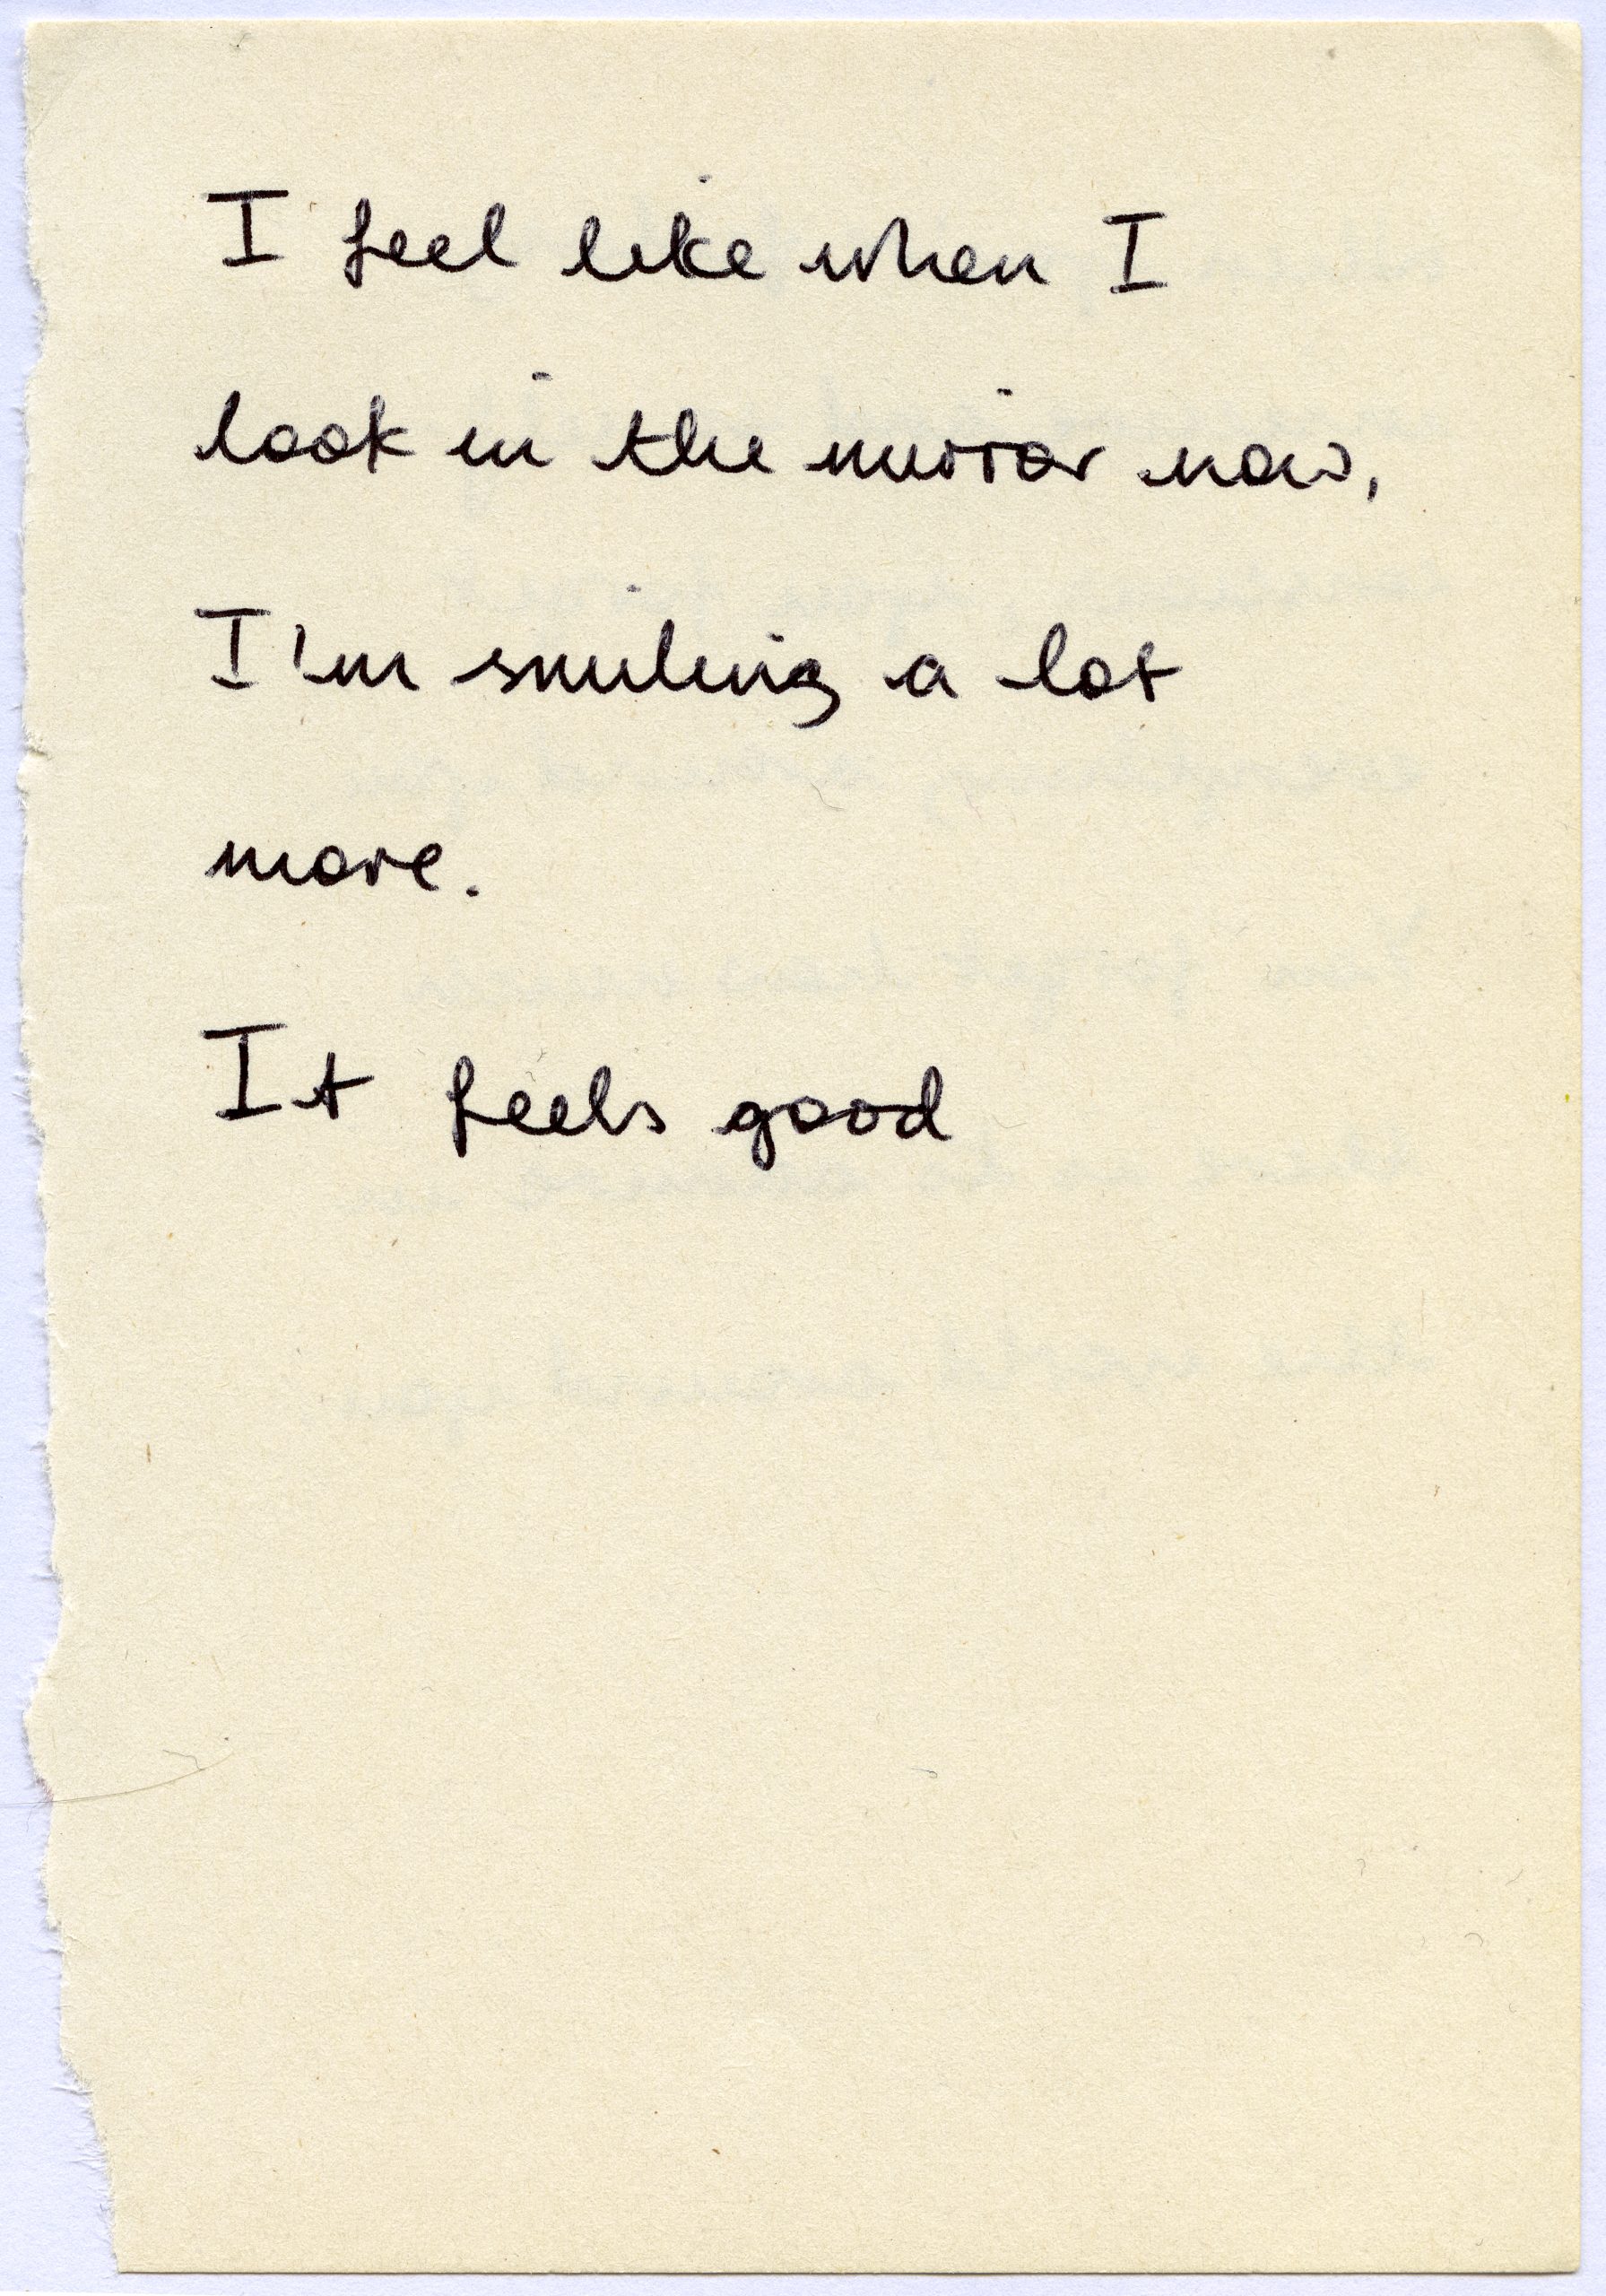 I feel like when I
look in the mirror now,
I'm smiling a lot
more.
It feels good